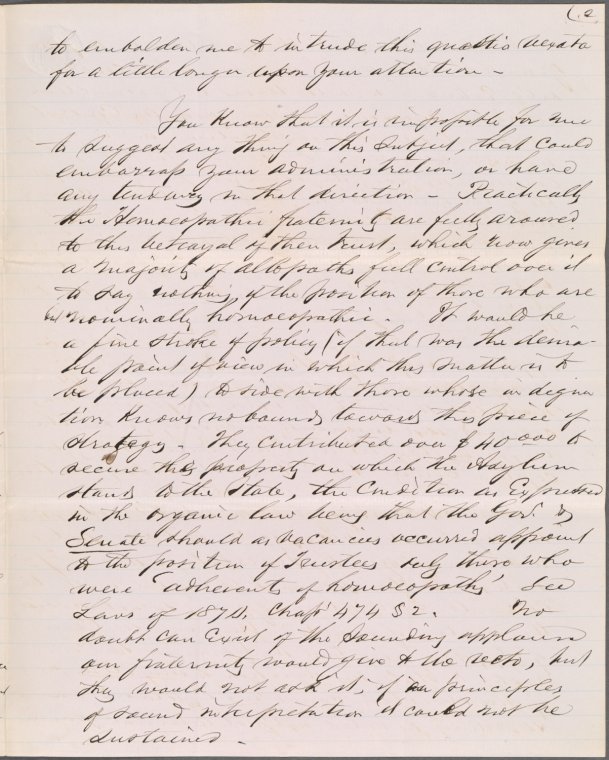 (2
to embolden me to intrude this questio vexata
for a little longer upon your attention -
You Know that it is impossible for me
to suggest any thing on this subject, that could
embarrass your administration, or have
any tendency in that direction - Practically
the Homoeopathic fraternity are fully aroused
to this betrayal of their trust, which now gives
a majority of allopaths full control over it
to say nothing of the position of those who are
but nominally homoeopathic. It would be
a fine stroke of policy (if that was the desira-
ble point of view in which this matter is to
be placed) to side with those whose indigna-
tion Knows no bounds towards this piece of
strategy. They contributed over $40000 to
secure the property on which the Asylum
stands to the State, the Condition as Expressed
in the organic law being that the Gov. &
Senate should as vacancies occurred appoint
to the position of Trustees only those who
were "adherents of homoeopathy" See
Laws of 1870. Chap 474 S 2. No
doubt can Exist of the sounding applause
our fraternity would give to the veto, but
they would not ask it, if on principles
of sound interpretation it could not be
sustained.